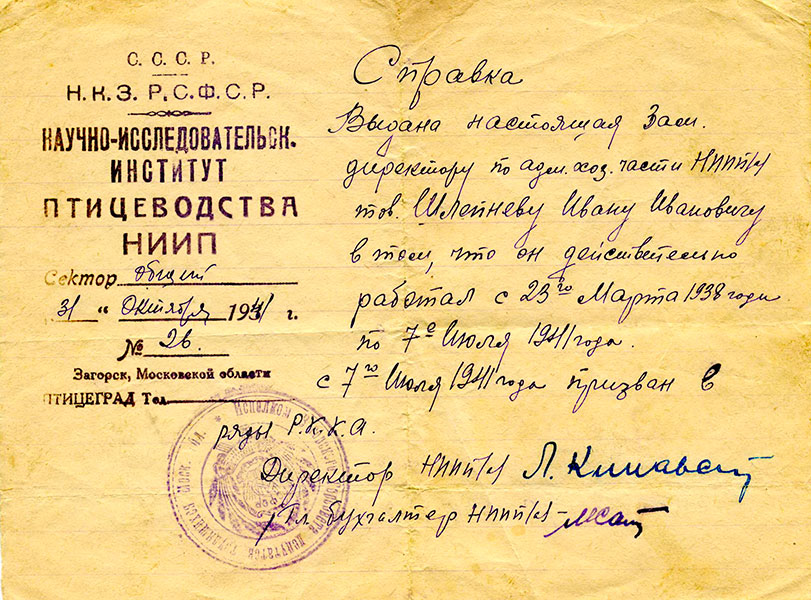 С. С. С. Р.
Н. К. З. Р. С. Ф. С. Р.
НАУЧНО-ИССЛЕДОВАТЕЛЬСК.
ИНСТИТУТ
ПТИЦЕВОДСТВА
НИИП
Сектор Общий
31 " Октября 1941 г.
№ 26.
Загорск, Московской области
ПТИЦЕГРАД Тел.
Справка
Выдана настоящая Зам.
директору по адм. хоз. части НИИП/я
тов. Шлейневу Ивану Ивановичу
в том, что он действительно
работал с 23го Марта 1938 года
по 7е Июля 1941 года.
с 7го Июля 1941 года призван в
ряды Р.К.К.А.
Директор НИИП/я
Гл. бухгалтер НИИП/я
Исполком
Моск. обл.